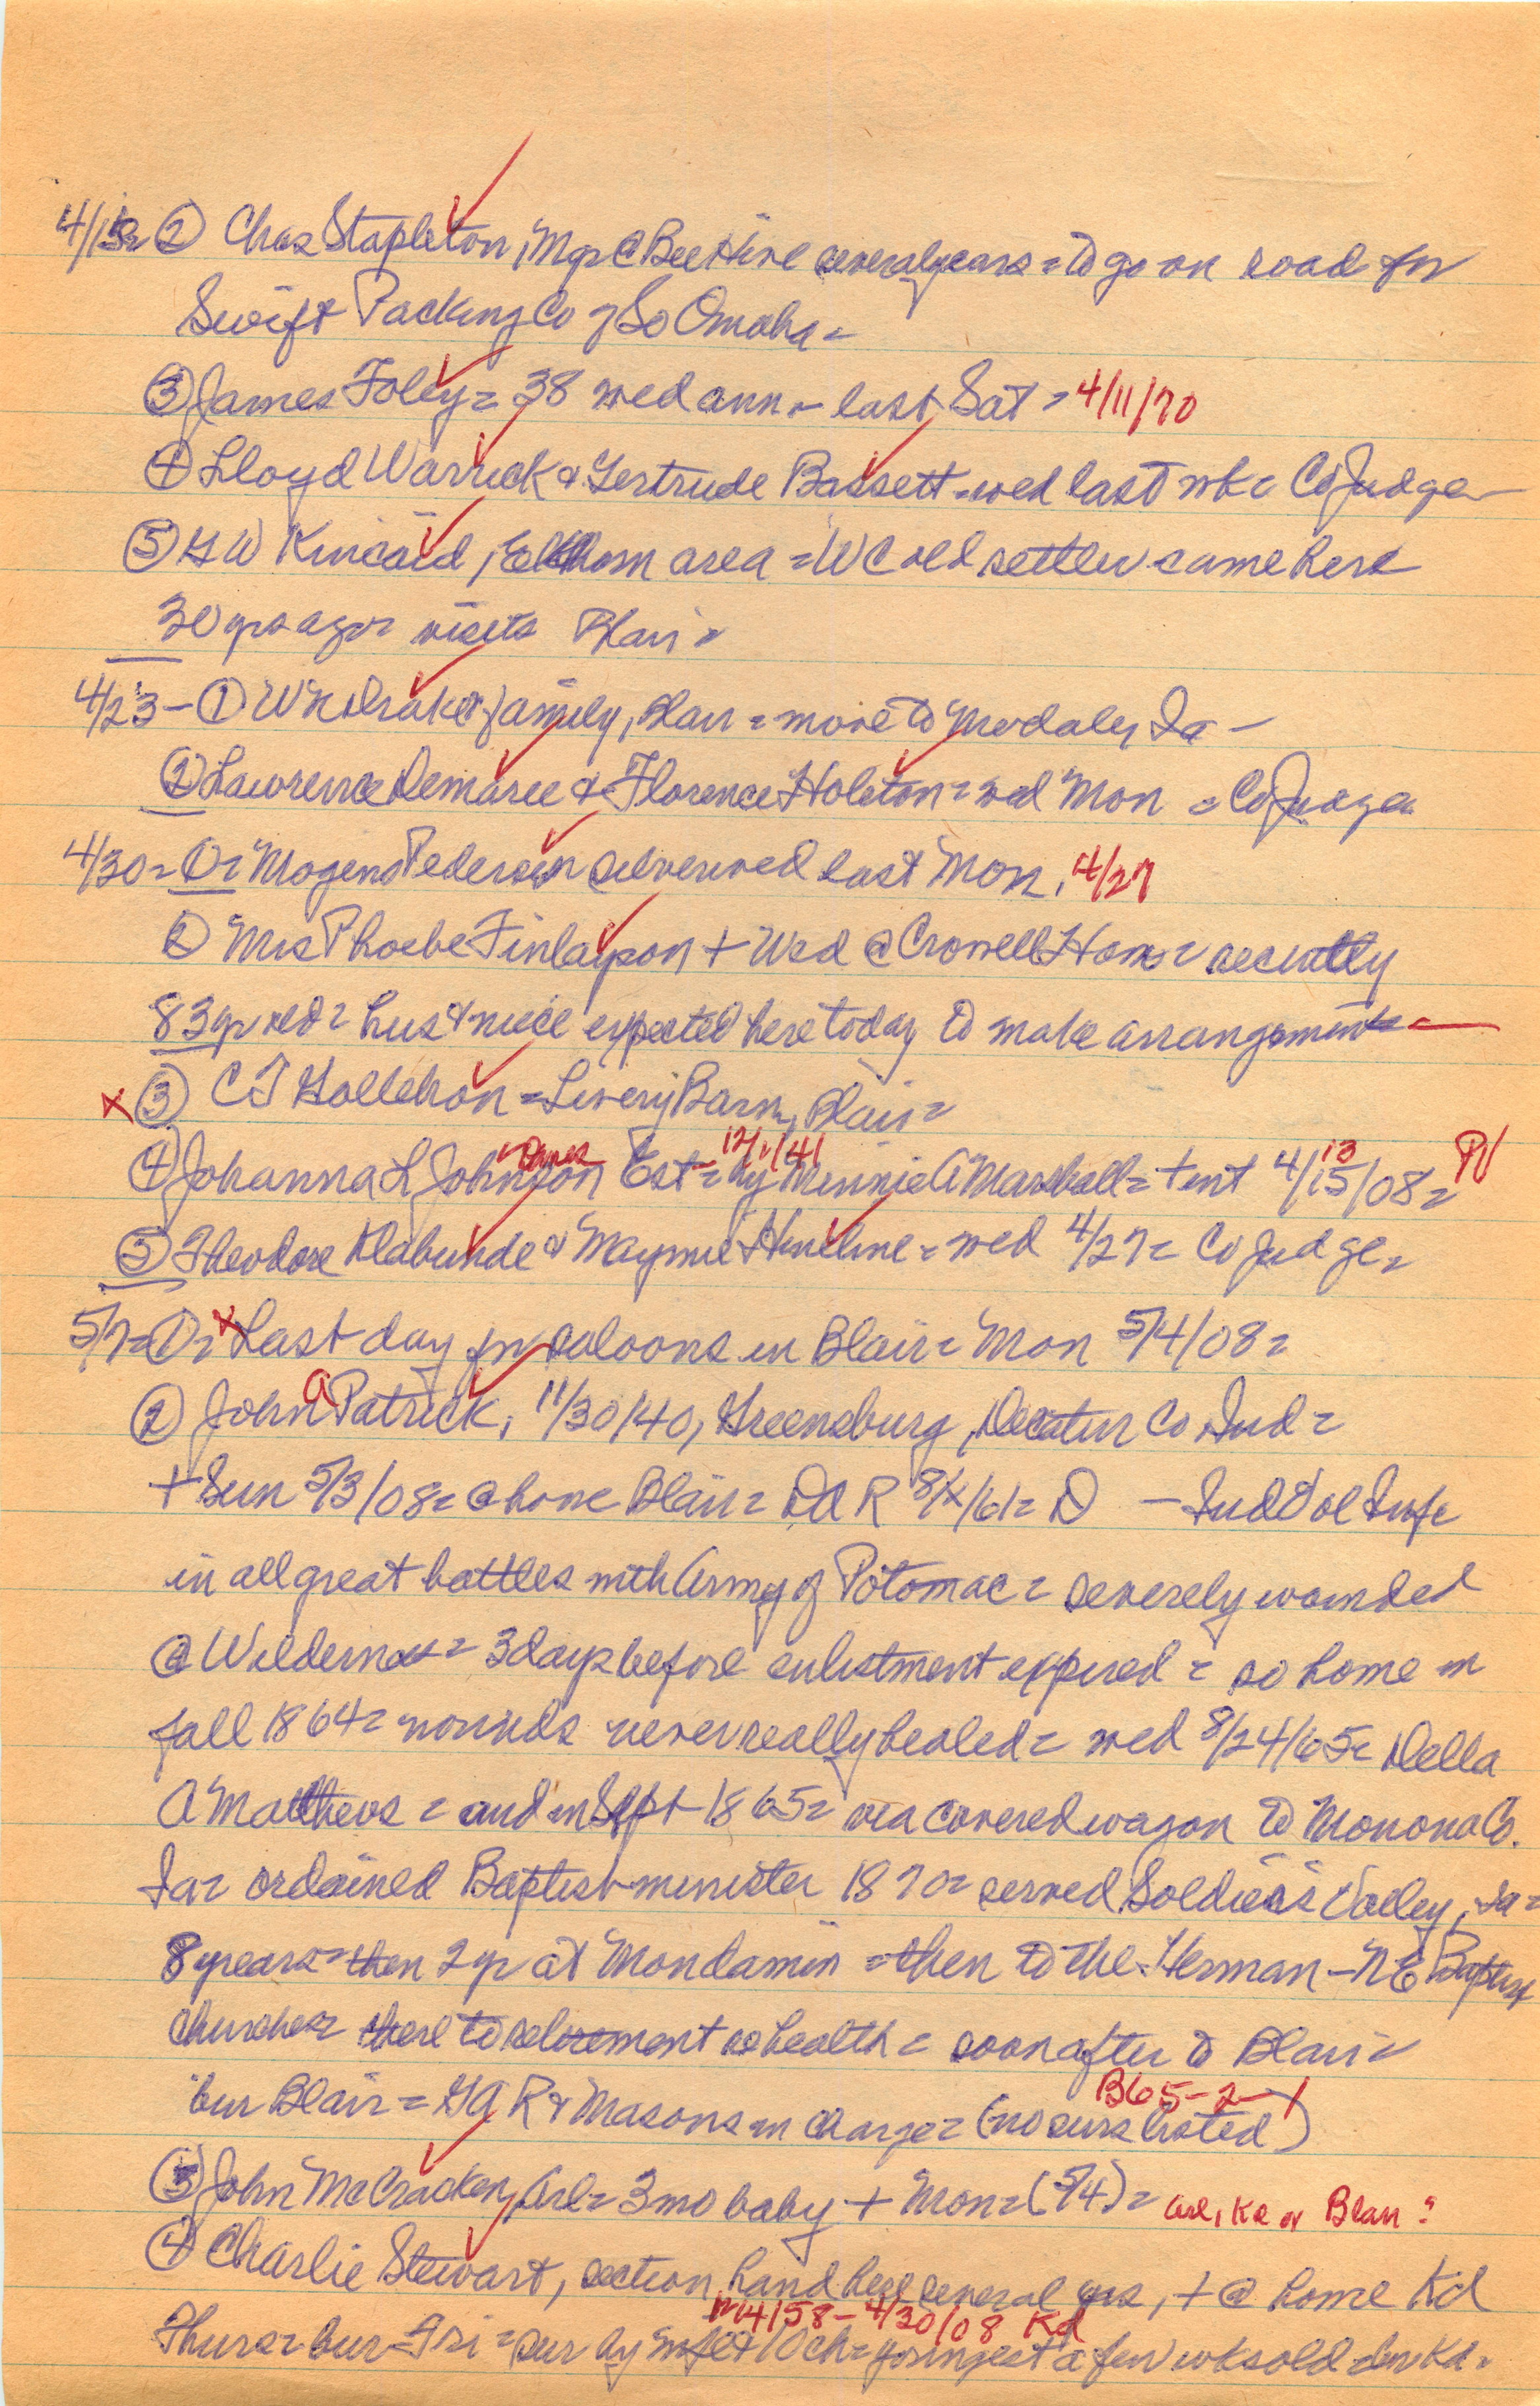 4/15= ② Chas Stapleton, Mgr @ BeeHive several years = to go on road for
Swift Packing Co of So Omaha =
③ James Foley = 38 wed ann = last Sat = 4/11/70
④ Lloyd Warrick & Gertrude Bassett = wed last wk = Co Judge =
⑤ G W Kincaid, Elkhorn area = WC old settler came here
30 yrs ago = visits Blair =
4/23 - ① Drake & family, Blair = move to Modale, Ia -
② Lawrence Demaree & Florence Holeton = wed Mon = Co Judge
4/30 = ① = Mogens Pedersen silver wed last Mon, 4/27
② Mrs Phoebe Finlayson + Wed @ Crowell Home = recently
83 yr old = hus & niece expected here today to make arrangements =
x ③ C T Hollehon = Livery Barn, Blair =
" Danes 12/1/41 13 PV
④ Johanna L Johnson Est = by Minnie A Marshall = + int 4/15/08 =
⑤ Theodore Klabunde & Maymie Hineline = wed 4/27 = Co Judge =
5/7 = ① = x Last day for saloons in Blair = Mon 5/4/08 =
② John A Patrick, 11/30/40, Greensburg, Decatur Co Ind =
+ Sun 5/3/08 = @ home Blair = DAR 8/x/61 = D - Ind Vol Infe
in all great battles with Army of Potomac = severely wounded
@ Wilderness = 3 days before enlistment expired = so home in
fall 1864 = wounds never really healed = wed 8/24/65 = Della
A Matthews = and in Sept 1865 = via covered wagon to Monona Co.
Ia = ordained Baptist minister 1870 = served Soldiers Valley, Ia =
8 years = then 2 yr at Mondamin = then to the Herman - NE Baptist
churches = there to retirement so health = soon after to Blair =
B65-2-1
bur Blair = GAR & Masons in charge = (no surs listed)
③ John McCracken, Arl = 3 mo baby + Mon = (5/4) = Arl, Kd or Blair?
④ Charlie Stewart, section hand here several yrs, + @ home Kd
12/4/58 - 4/30/08 Kd
Thurs = bur Fri = sur by wife & 10 ch = youngest a few wks old = bur Kd =